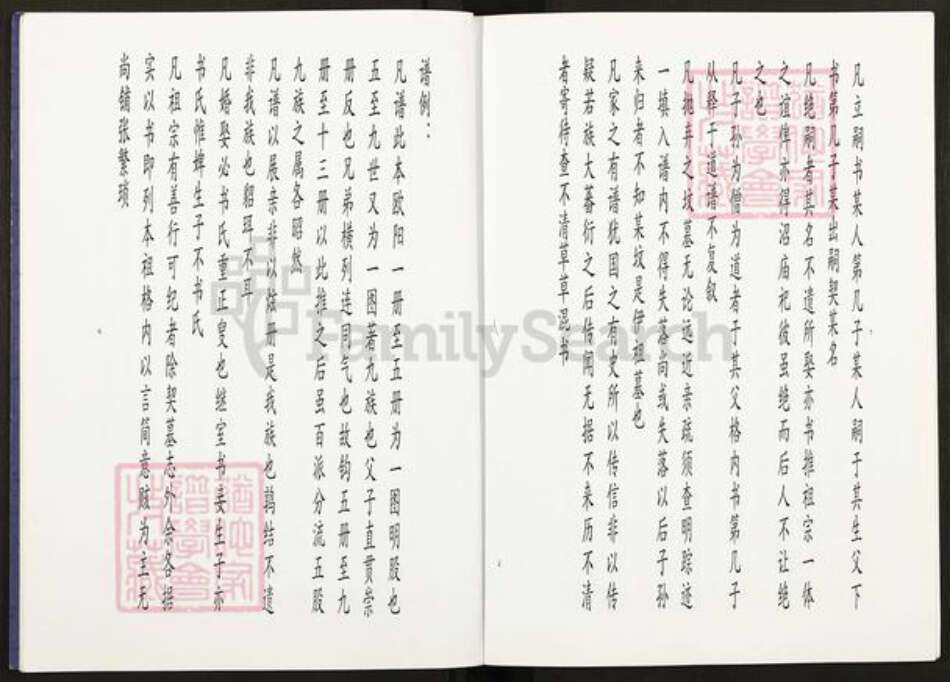 谱例：
凡谱此本欧阳一册至五册为一图明股也
五至九世又为一图著九族也父子直贯崇
册反也兄弟横列连同气也故钧五册至九
册至十三册以此推之后虽百派分流五股
九族之属各昭然
凡谱以展亲非以炫册是我族也鹑结不遗
非我族也貂珥不耳
凡婚娶必书氏重正叟也继室书妾生子亦
书氏惟婢生子不书氏
凡祖宗有善行可纪者除契墓志外余各据
实以书即列本祖格内以言简意赅为主无
尚铺张繁琐
凡立嗣书某人第几子某人嗣于其生父下
书第几子某出嗣契某名
凡绝嗣者其名不遗所娶亦书推祖宗一体
之谊俾亦得沼庙祀彼虽绝而后人不让绝
之也
凡子孙为僧为道者于其父格内书第几子
以释于道谱不复叙
凡抛弃之坟墓无论远近亲疏须查明踪迹
一填入谱内不得失落尚或失落以后子孙
来归者不知某坟是伊祖墓也
凡家之有谱犹国之有史所以传信非以传
疑若族大蕃衍之后传闻无据不来历不清
者寄待查不清草草混书
猶他家
譜學會
猶他家
譜學會
FamilySearch